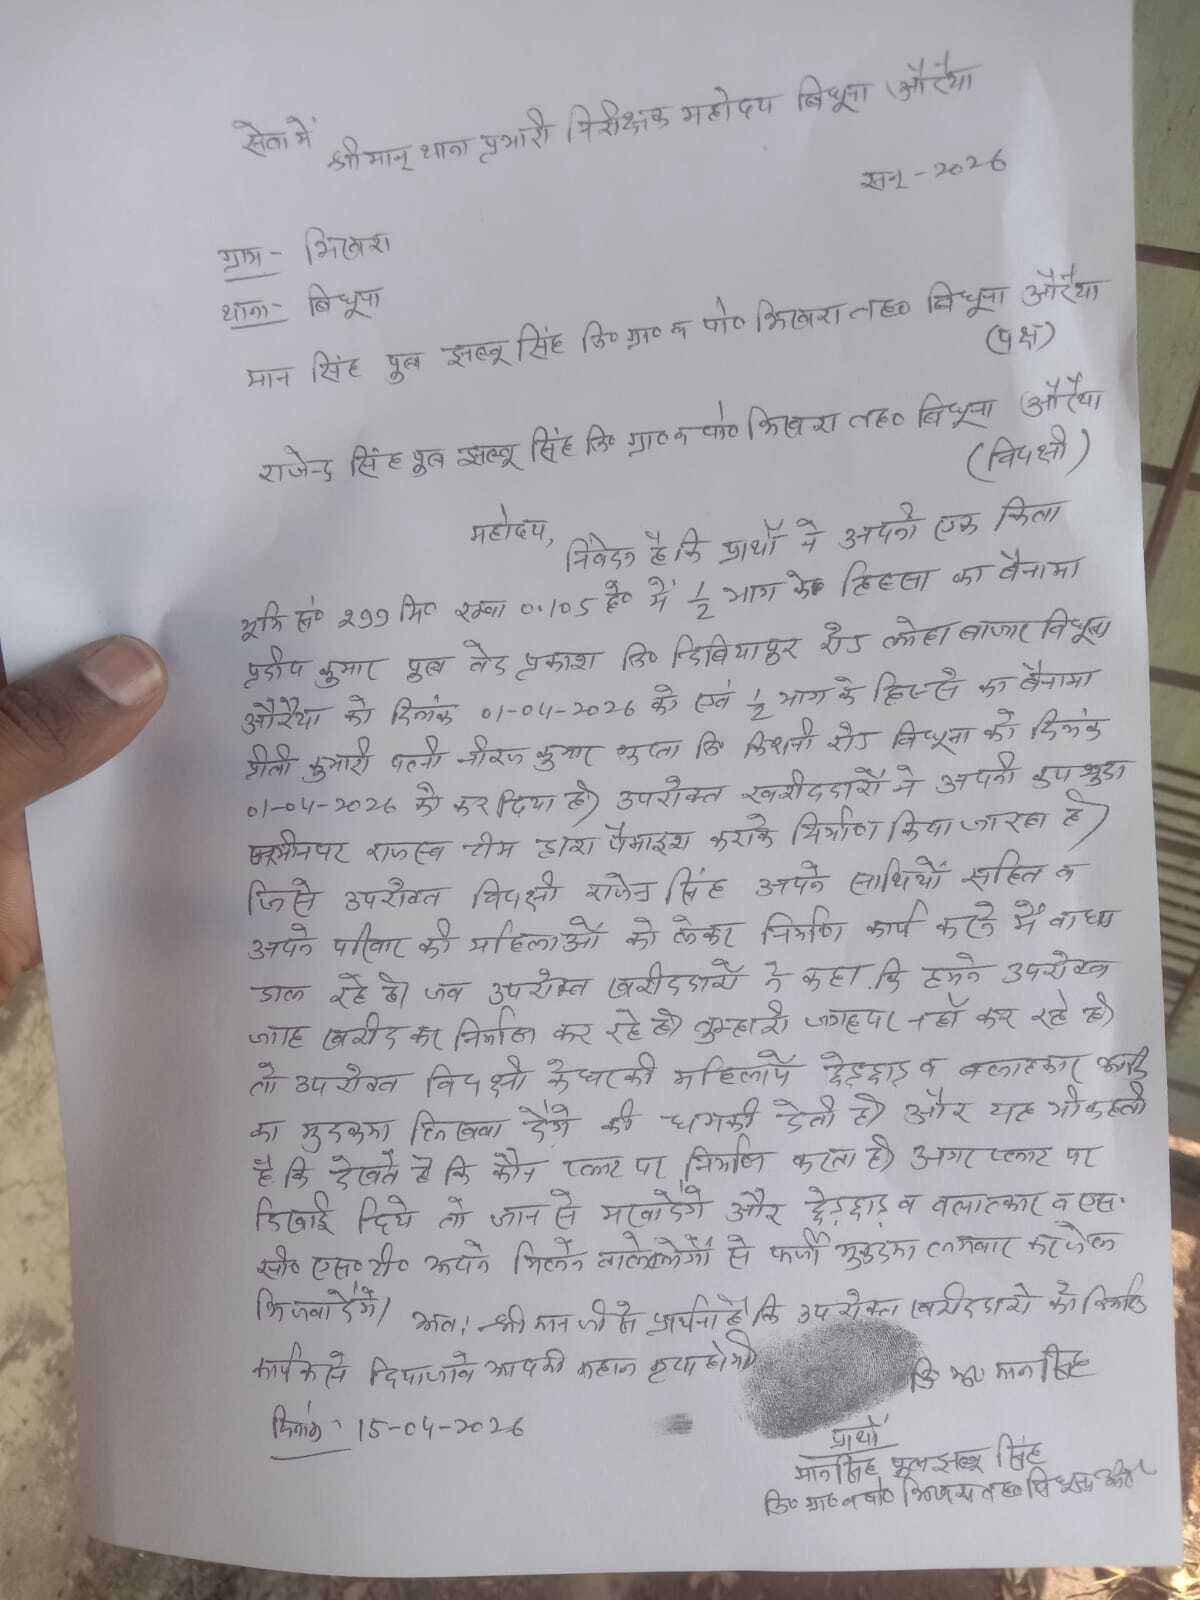 सेवा में
श्रीमान् थाना प्रभारी निरीक्षक महोदय बिधूना औरैया
सन् - 2026
ग्राम - भिखरा
थाना - बिधूना
मान सिंह पुत्र झल्लू सिंह नि० ग्रा० व पो० भिखरा तह० बिधूना औरैया
(पक्ष)
राजेन्द्र सिंह पुत्र झल्लू सिंह नि० ग्रा० व पो० भिखरा तह० बिधूना औरैया
(विपक्षी)
महोदय,
निवेदन है कि प्रार्थी ने अपनी एक किता
भूमि सं० 299 मि० रकवा 0.105 हे० में 1/2 भाग के हिस्सा का बैनामा
प्रदीप कुमार पुत्र वेद प्रकाश नि० दिबियापुर रोड लोहा बाजार बिधूना
औरैया को दिनांक 01-04-2026 को एवं 1/2 भाग के हिस्से का बैनामा
प्रीती कुमारी पत्नी नीरज कुमार गुप्ता नि० किशनी रोड बिधूना को दिनांक
01-04-2026 को कर दिया है। उपरोक्त खरीददारों ने अपनी क्रय शुदा
जमीन पर राजस्व टीम द्वारा पैमाइश कराके निर्माण किया जा रहा है।
जिसे उपरोक्त विपक्षी राजेन्द्र सिंह अपने साथियों सहित व
अपने परिवार की महिलाओं को लेकर निर्माण कार्य करने में बाधा
डाल रहे है। जब उपरोक्त खरीददारों ने कहा कि हमने उपरोक्त
जगह खरीद कर निर्माण कर रहे है। तुम्हारी जगह पर नहीं कर रहे है।
तो उपरोक्त विपक्षी के घर की महिलायें छेड़छाड़ व बलात्कार आदि
का मुकदमा लिखवा देंगे की धमकी देती है। और यह भी कहती
है कि देखते है कि कौन प्लाट पर निर्माण करता है। अगर प्लाट पर
दिखाई दिये तो जान से मरवा देंगे और छेड़छाड़ व बलात्कार व एस.
सी० एस० टी० अपने मिलने वाले लोगों से फर्जी मुकदमा लगवा कर जेल
भिजवा देंगे।
अतः श्रीमान जी से प्रार्थना है कि उपरोक्त खरीददारो को निर्माण
कार्य करने दिया जावे आपकी महान कृपा होगी
नि० अं० मान सिंह
दिनांक: 15-04-2026
प्रार्थी
मान सिंह पुत्र झल्लू सिंह
नि० ग्रा० व पो० भिखरा तह० बिधूना औरैया